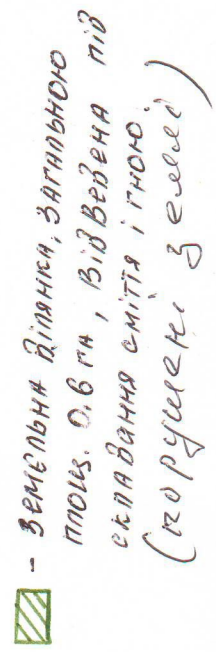 - земельна ділянка, загальною
площ. 0.6 га, відведена під
складання сміття і гною.
(порушені землі)